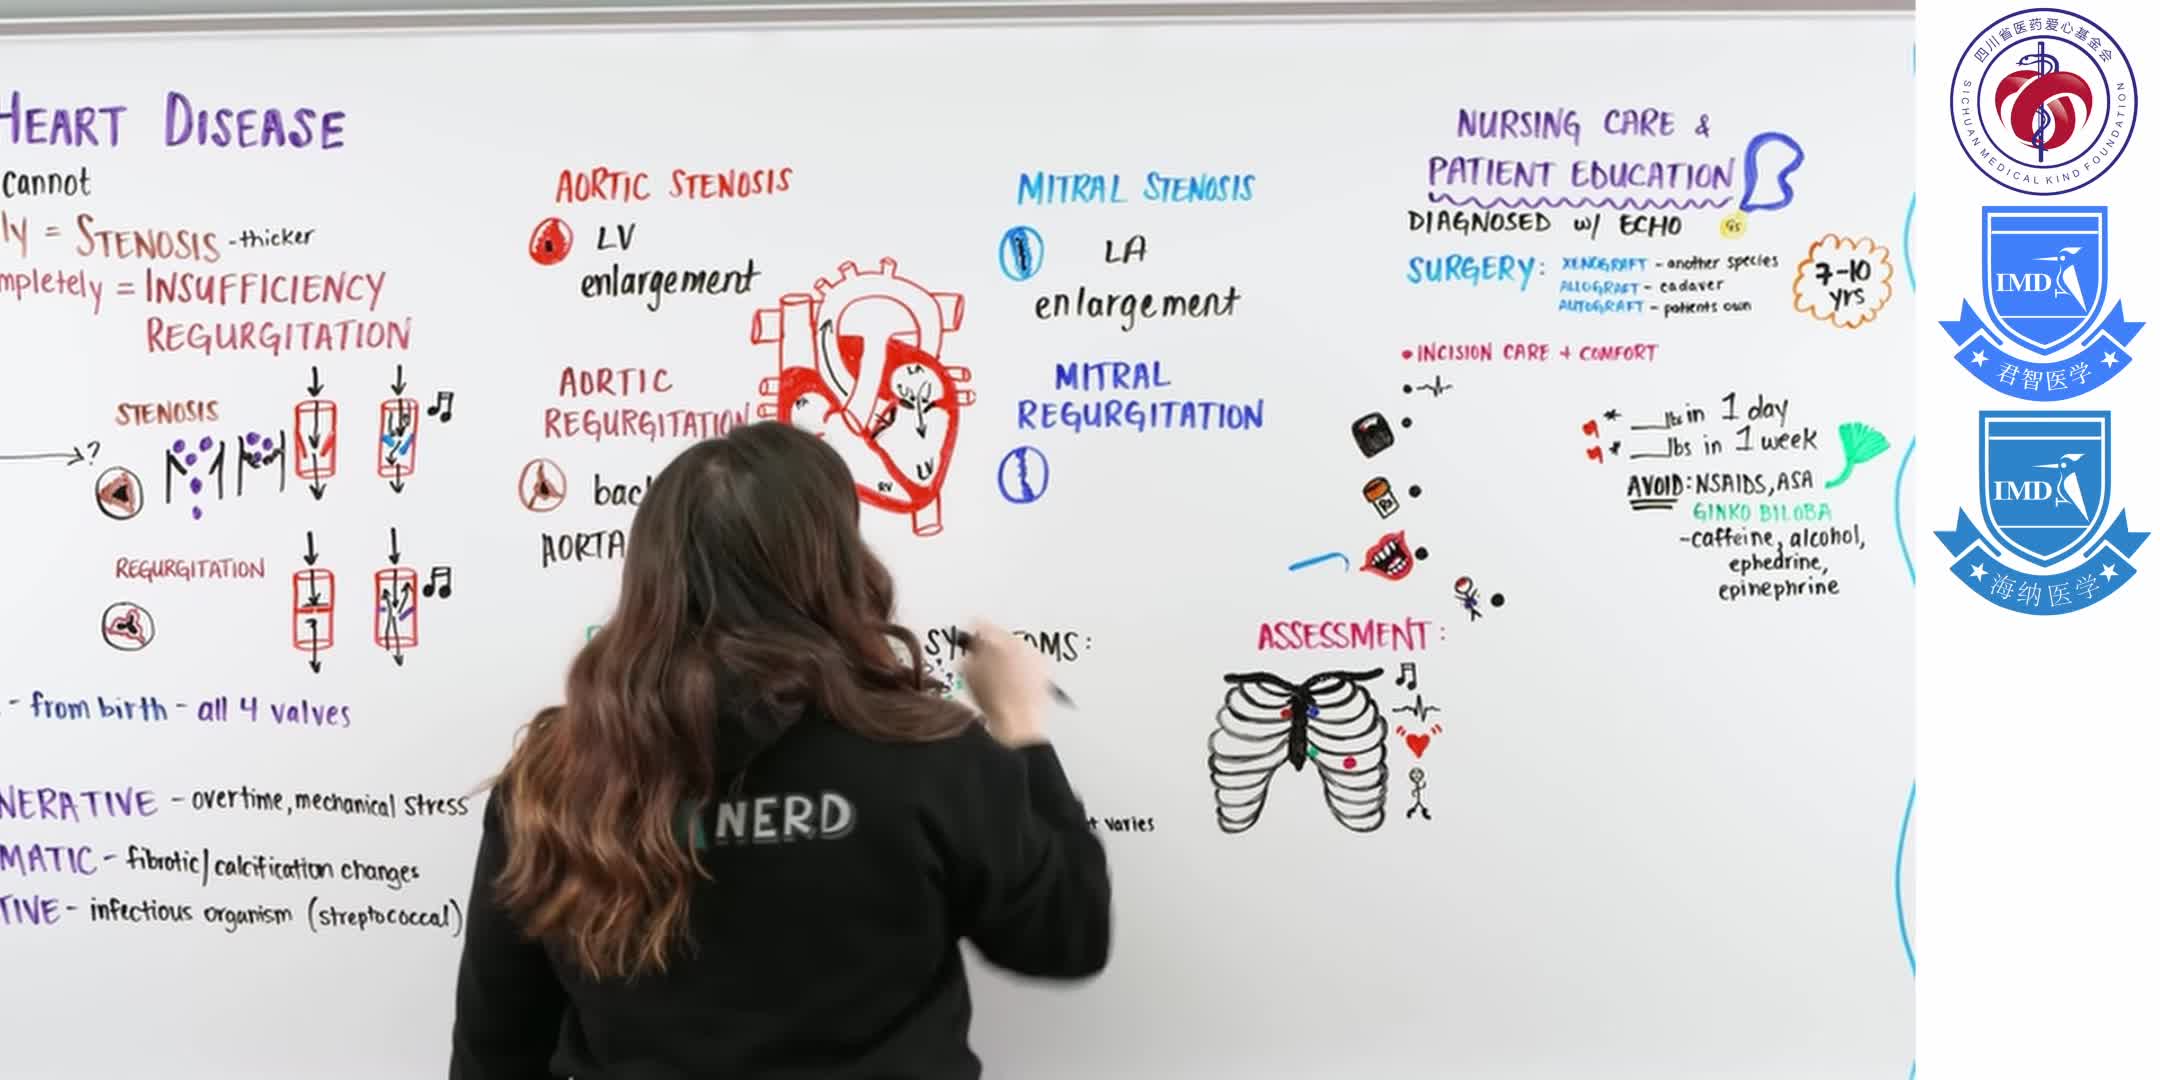 HEART DISEASE
cannot
ly = STENOSIS - thicker
mpletely = INSUFFICIENCY
REGURGITATION
STENOSIS
?
REGURGITATION
- from birth - all 4 valves
NERATIVE - overtime, mechanical stress
MATIC - fibrotic/calcification changes
TIVE - infectious organism (streptococcal)
AORTIC STENOSIS
LV
enlargement
AORTIC
REGURGITATION
bac
AORTA
LA
LV
RV
MITRAL STENOSIS
LA
enlargement
MITRAL
REGURGITATION
SY OMS:
varies
NERD
NURSING CARE &
PATIENT EDUCATION
DIAGNOSED w/ ECHO
SURGERY: XENOGRAFT - another species
ALLOGRAFT - cadaver
AUTOGRAFT - patients own
7-10
yrs
• INCISION CARE + COMFORT
* __lbs in 1 day
* __lbs in 1 week
AVOID: NSAIDS, ASA
GINKO BILOBA
- caffeine, alcohol,
ephedrine,
epinephrine
Rx
ASSESSMENT:
四川省医药爱心基金会
SICHUAN MEDICAL KIND FOUNDATION
IMD
君智医学
IMD
海纳医学